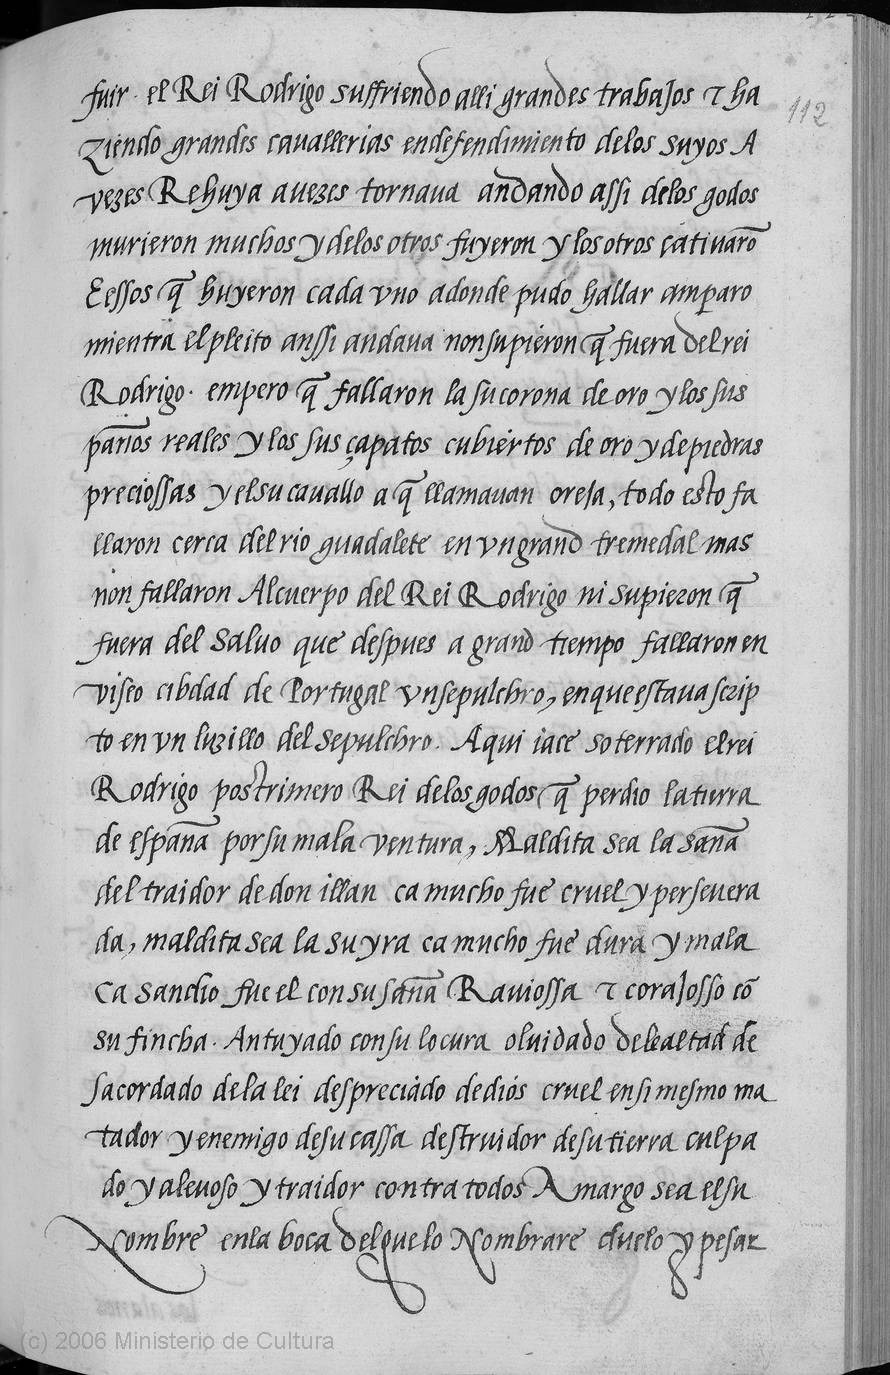 112
fuir · el Rei Rodrigo suffriendo alli grandes trabajos τ ha
ziendo grandes cavallerias endefendimiento delos suyos A
vezes Rehuya avezes tornava andando assi delos godos
murieron muchos y delos otros fuyeron y los otros çativarõ
E essos q̃ huyeron cada vno adonde pudo hallar amparo
mientra el pleito anssi andava non supieron q̃ fuera del rei
Rodrigo · empero q̃ fallaron la su corona de oro y los sus
pãnos reales y los sus çapatos cubiertos de oro y de piedras
preciossas y el su cavallo a q̃ llamavan oreja, todo esto fa
llaron cerca del rio guadalete en vn grand tremedal mas
non fallaron Alcuerpo del Rei Rodrigo ni supieron q̃
fuera del salvo que despues a grand tiempo fallaron en
viseo cibdad de Portugal vn sepulchro, en que estava scrip
to en vn luzillo del sepulchro. Aqui iace soterrado el rei
Rodrigo postrimero Rei delos godos q̃ perdio la tierra
de espãna por su mala ventura, Maldita sea la sãna
del traidor de don illan ca mucho fue cruel y persevera
da, maldita sea la su yra ca mucho fue dura y mala
Ca sandio fue el con su sãna Raviossa τ corajosso cõ
su fincha · Antuyado con su locura olvidado de lealtad de
sacordado de la lei despreciado de diós cruel en si mesmo ma
tador y enemigo de su cassa destruidor de su tierra culpa
do y alevoso y traidor contra todos Amargo sea el su
Nombre enla boca del que lo Nombrare duelo y pesar
(c) 2006 Ministerio de Cultura